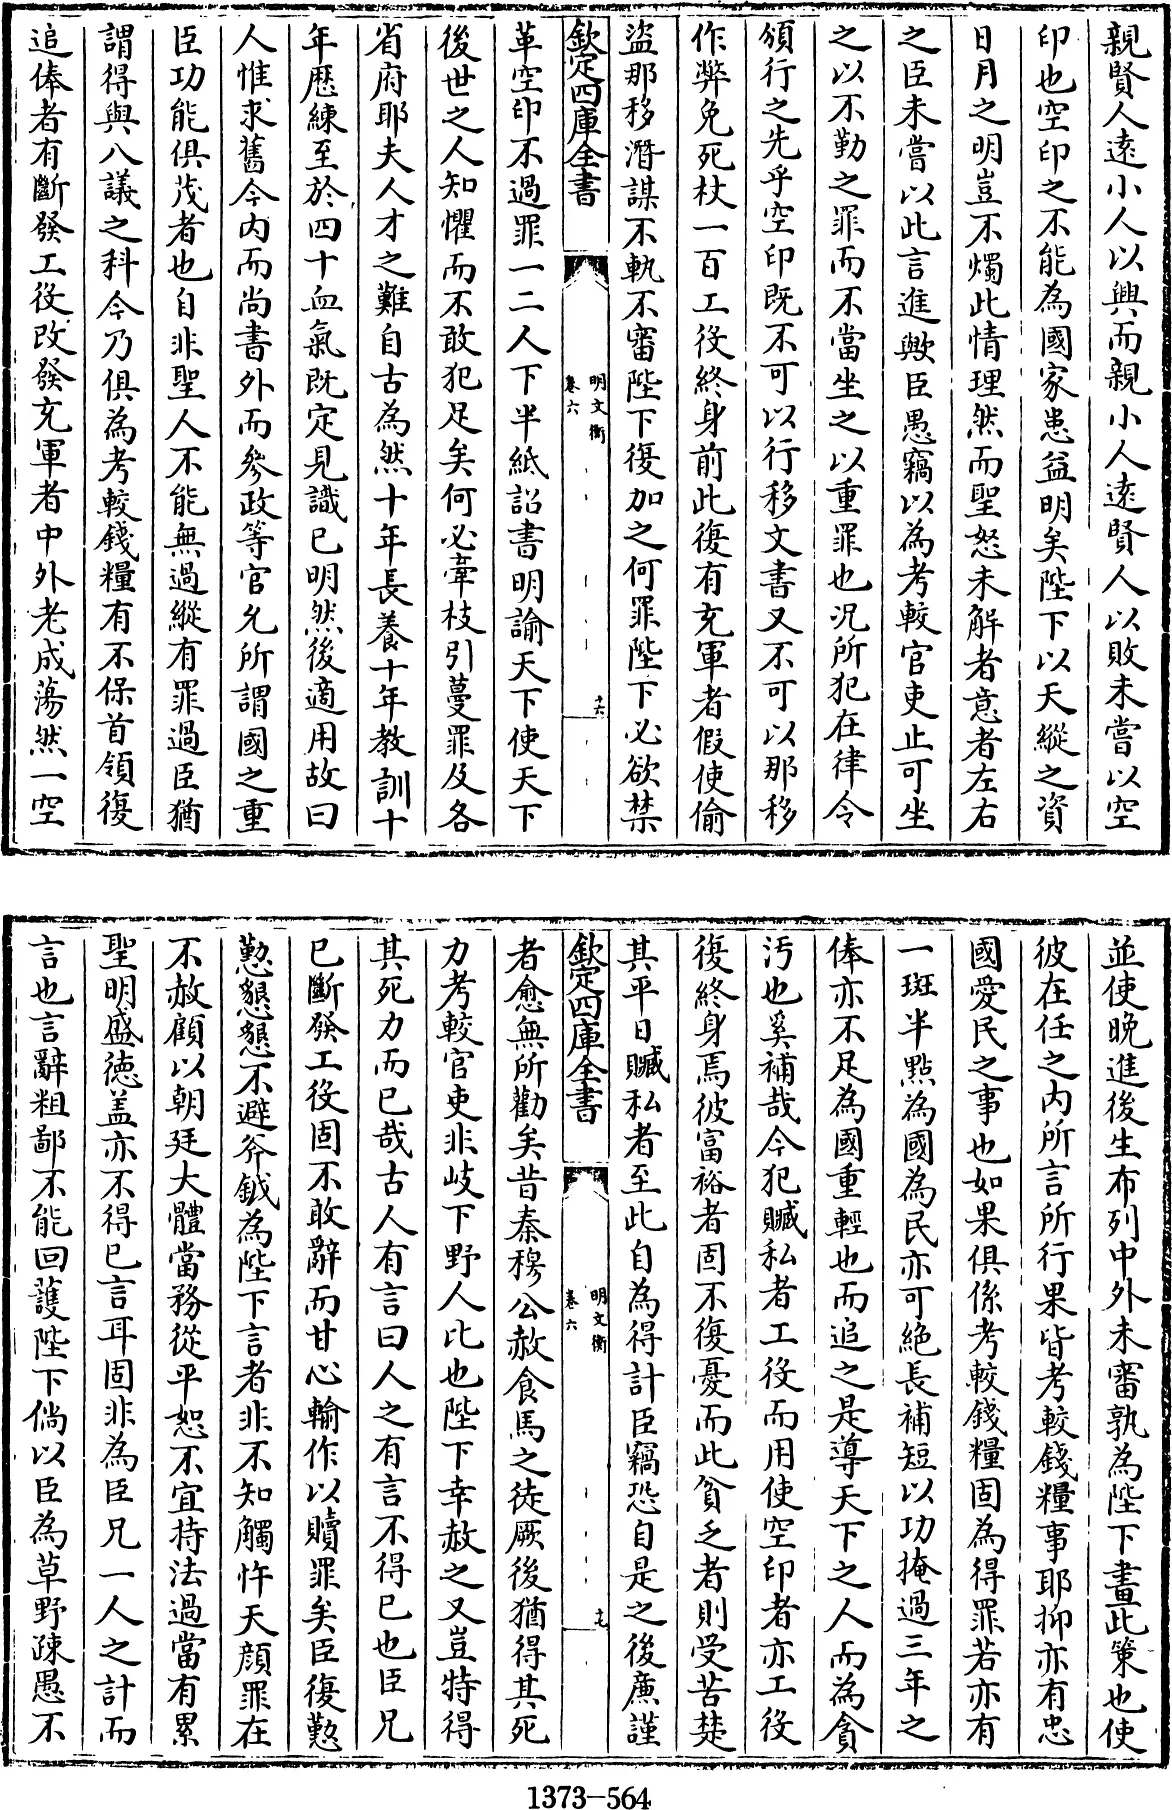 親賢人遠小人以興而親小人遠賢人以敗未嘗以空
印也空印之不能為國家患益明矣陛下以天縱之資
日月之明豈不燭此情理然而聖怒未解者意者左右
之臣未嘗以此言進歟臣愚竊以為考較官吏止可坐
之以不勤之罪而不當坐之以重罪也況所犯在律令
頒行之先乎空印既不可以行移文書又不可以那移
作弊免死杖一百工役終身前此復有充軍者假使偷
盜那移潛謀不軌不審陛下復加之何罪陛下必欲禁
欽定四庫全書
明文衡
卷六
十六
革空印不過罪一二人下半紙詔書明諭天下使天下
後世之人知懼而不敢犯足矣何必牽枝引蔓罪及各
省府耶夫人才之難自古為然十年長養十年教訓十
年歷練至於四十血氣既定見識已明然後適用故曰
人惟求舊今內而尚書外而參政等官允所謂國之重
臣功能俱茂者也自非聖人不能無過縱有罪過臣猶
謂得與八議之科今乃俱為考較錢糧有不保首領復
追俸者有斷發工役改發充軍者中外老成蕩然一空
並使晚進後生布列中外未審孰為陛下畫此策也使
彼在任之內所言所行果皆考較錢糧事耶抑亦有忠
國愛民之事也如果俱係考較錢糧固為得罪若亦有
一斑半點為國為民亦可絕長補短以功掩過三年之
俸亦不足為國重輕也而追之是導天下之人而為貪
污也奚補哉今犯贓私者工役而用使空印者亦工役
復終身焉彼富裕者固不復憂而此貧乏者則受苦楚
其平日贓私者至此自為得計臣竊恐自是之後廉謹
欽定四庫全書
明文衡
卷六
十七
者愈無所勸矣昔秦穆公赦食馬之徒厥後猶得其死
力考較官吏非岐下野人比也陛下幸赦之又豈特得
其死力而已哉古人有言曰人之有言不得已也臣兄
已斷發工役固不敢辭而甘心輸作以贖罪矣臣復懃
懃懇懇不避斧鉞為陛下言者非不知觸忤天顏罪在
不赦顧以朝廷大體當務從平恕不宜持法過當有累
聖明盛德盖亦不得已言耳固非為臣兄一人之計而
言也言辭粗鄙不能回護陛下倘以臣為草野疎愚不
1373-564